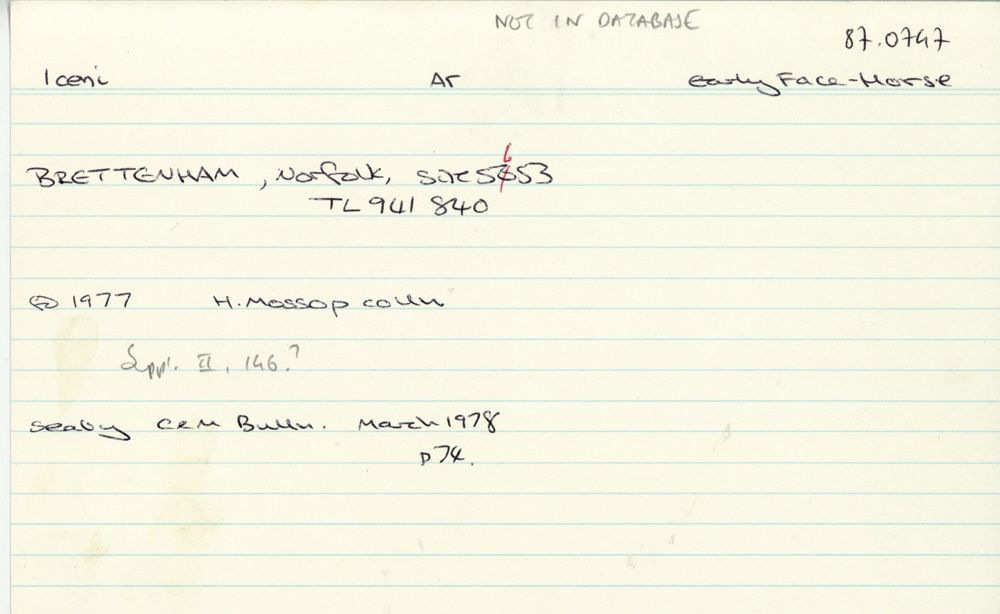 NOT IN DATABASE
87.0747
Iceni Ar early Face-Horse
BRETTENHAM, Norfolk, site 5653
TL 941 840
1977 H. Mossop colln
Suppl. II, 146.?
Seaby C&M Bulln. March 1978
p 74.